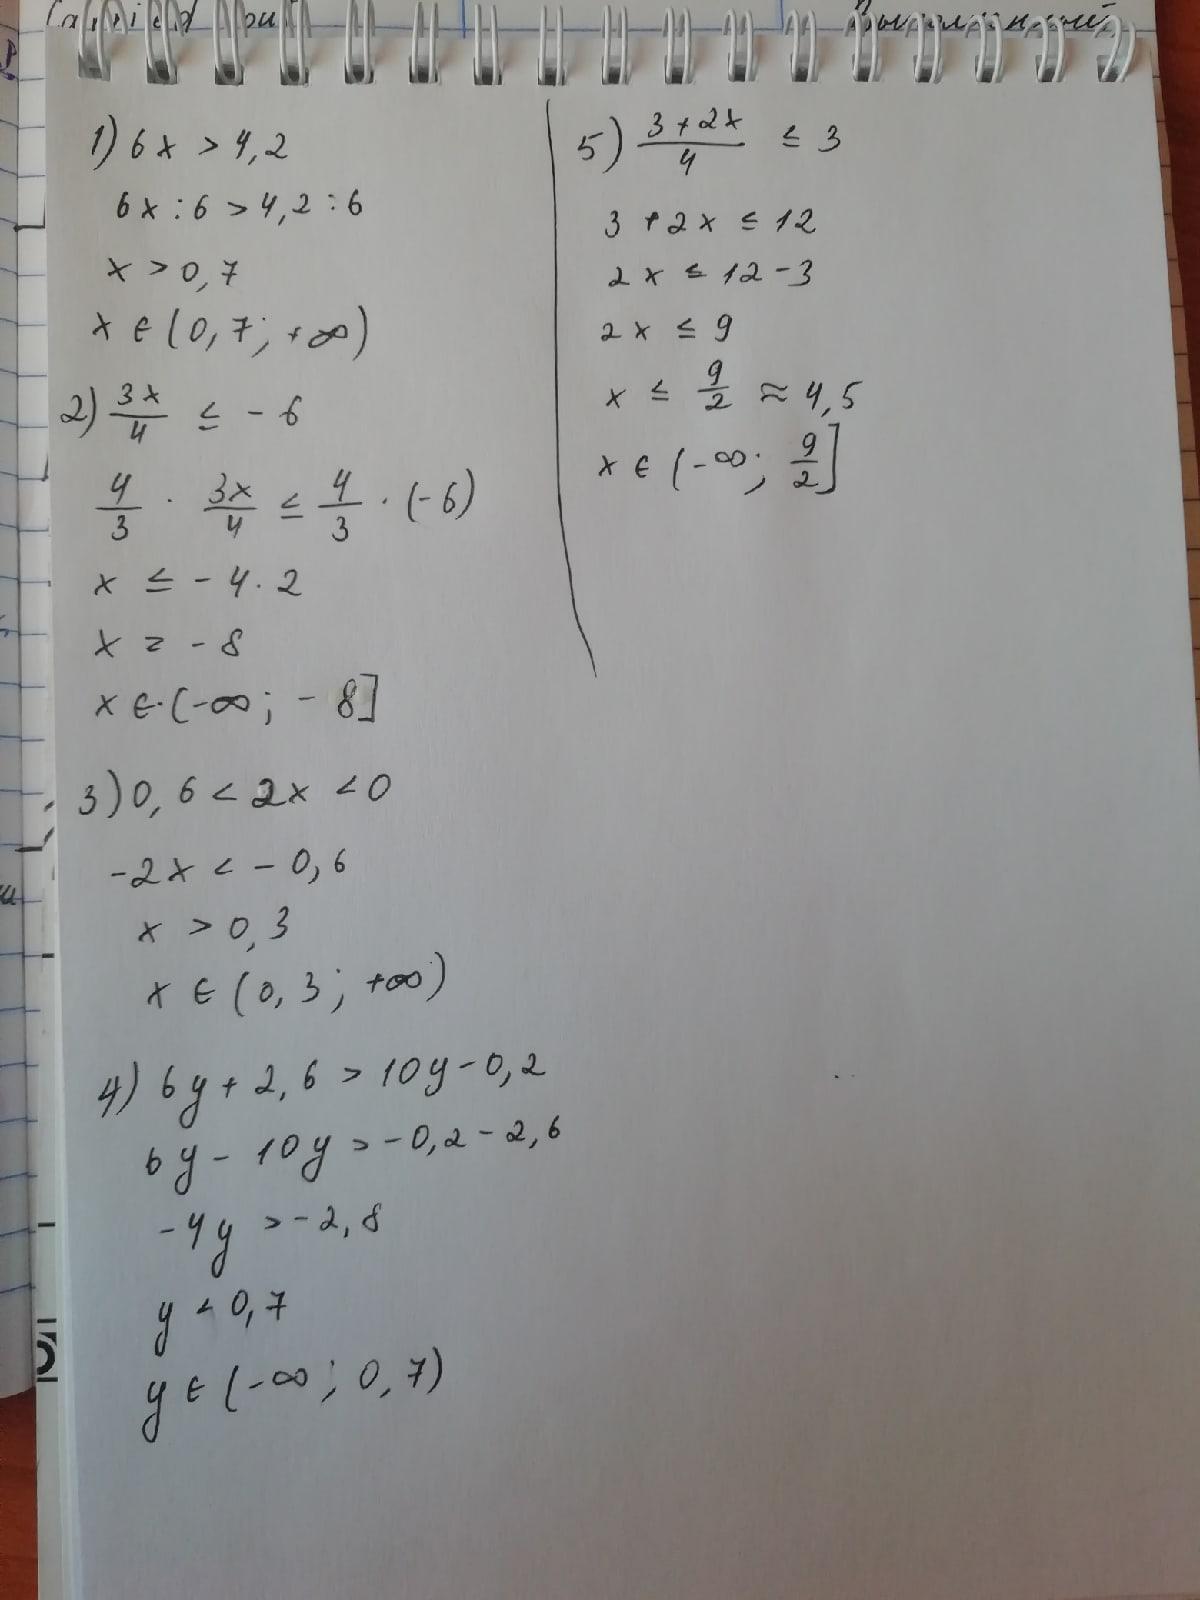 1) 6x > 4,2
6x : 6 > 4,2 : 6
x > 0,7
x ∈ (0,7; +∞)
2) 3x/4 ≤ -6
4/3 · 3x/4 ≤ 4/3 · (-6)
x ≤ -4 · 2
x = -8
x ∈ (-∞; -8]
3) 0,6 < 2x < 0
-2x < -0,6
x > 0,3
x ∈ (0,3; +∞)
4) 6y + 2,6 > 10y - 0,2
6y - 10y > -0,2 - 2,6
-4y > -2,8
y < 0,7
y ∈ (-∞; 0,7)
5) 3+2x/4 ≤ 3
3 + 2x ≤ 12
2x ≤ 12 - 3
2x ≤ 9
x ≤ 9/2 ≈ 4,5
x ∈ (-∞; 9/2]